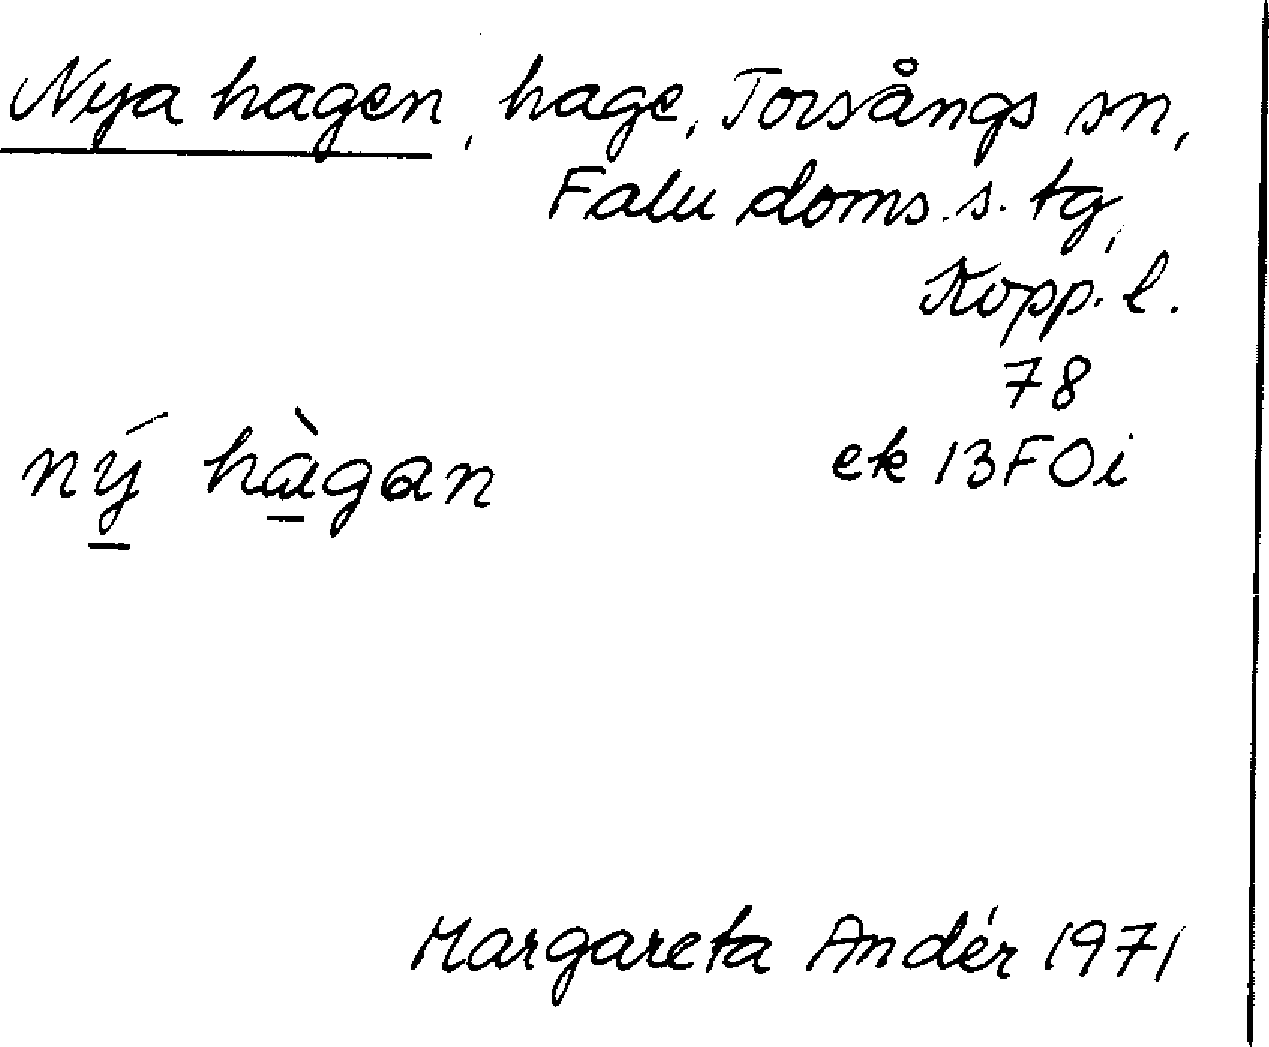 Nya hagen, hage, Torsångs sn,
Falu doms. s. tg,
Kopp. l.
78
ek 13F0i
ný hàgan
Margareta Andér 1971